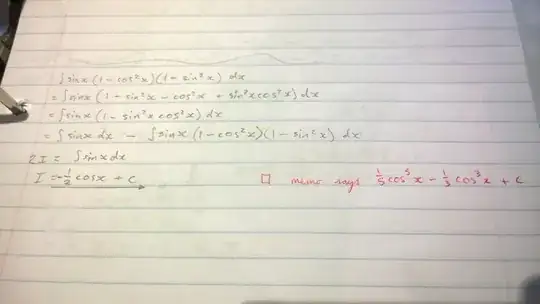 ∫ sinx (1 - cos²x)(1 - sin²x) dx
= ∫ sinx (1 - sin²x - cos²x + sin²x cos²x) dx
= ∫ sinx (1 - sin²x cos²x) dx
= ∫ sinx dx - ∫ sinx (1 - cos²x)(1 - sin²x) dx
2I = ∫ sinx dx
I = -1/2 cosx + c
□ memo says 1/5 cos⁵x - 1/3 cos³x + c